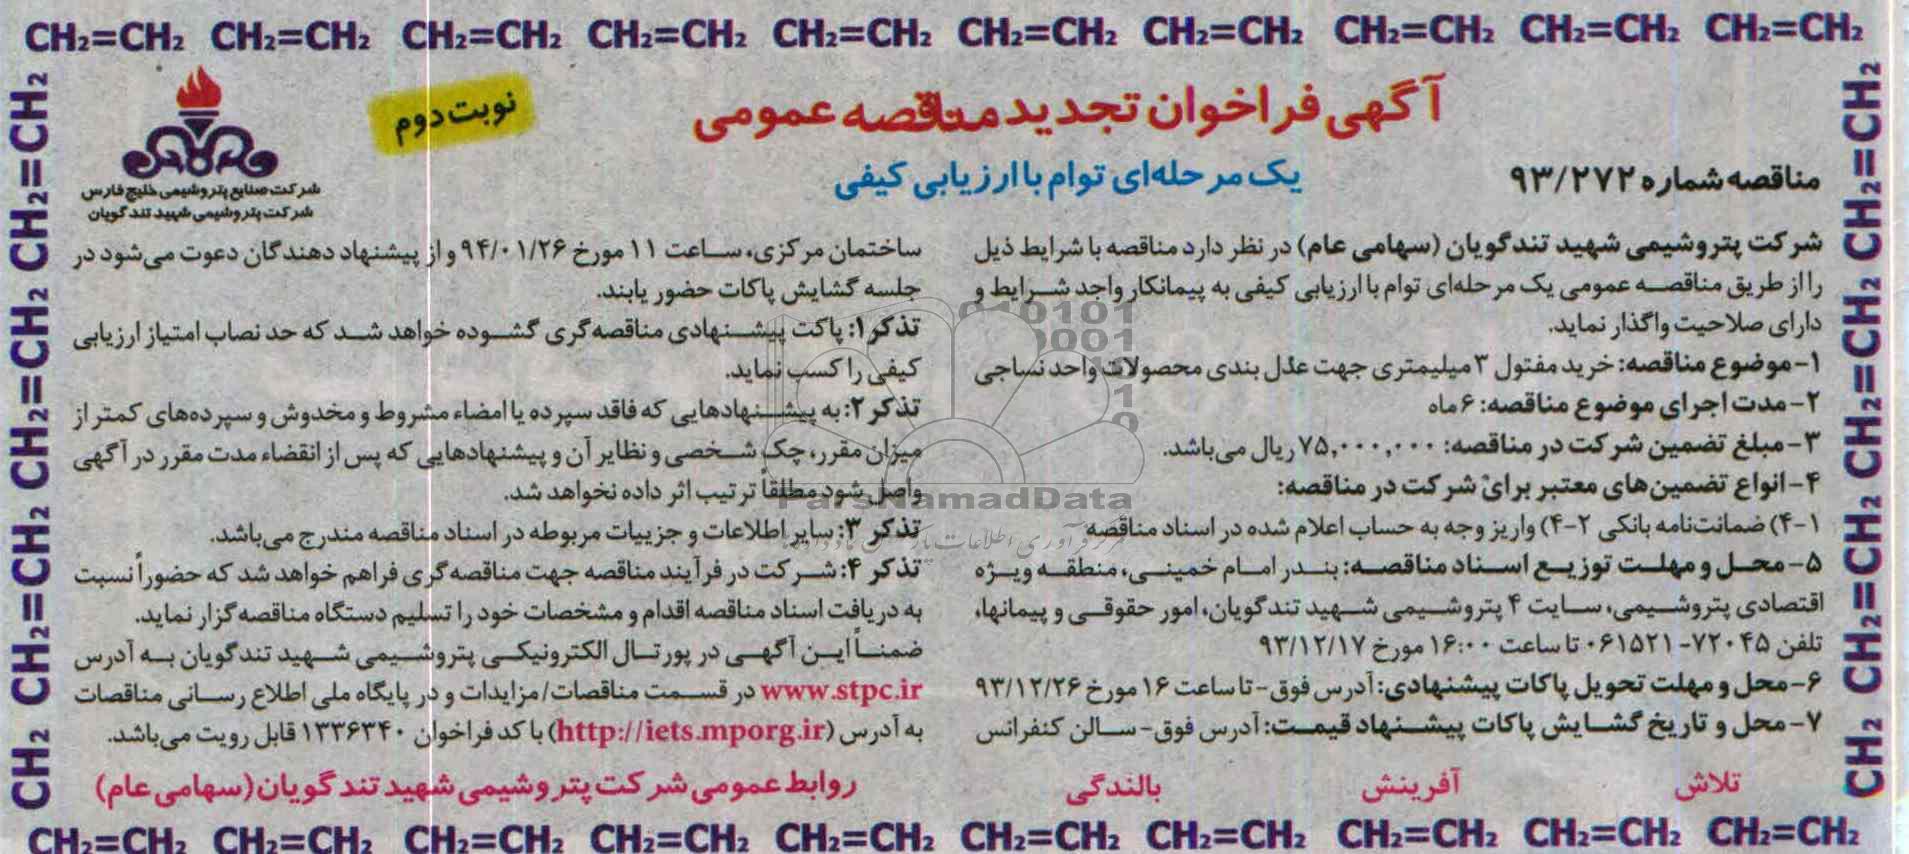 CH₂=CH₂ CH₂=CH₂ CH₂=CH₂ CH₂=CH₂ CH₂=CH₂ CH₂=CH₂ CH₂=CH₂ CH₂=CH₂ CH₂=CH₂ CH₂=CH₂
آگهی فراخوان تجدید مناقصه عمومی
نوبت دوم
یک مرحله‌ای توام با ارزیابی کیفی
مناقصه شماره ۹۳/۲۷۲
شرکت صنایع پتروشیمی خلیج فارس
شرکت پتروشیمی شهید تندگویان
شرکت پتروشیمی شهید تندگویان (سهامی عام) در نظر دارد مناقصه با شرایط ذیل
را از طریق مناقصه عمومی یک مرحله‌ای توام با ارزیابی کیفی به پیمانکار واجد شرایط و
دارای صلاحیت واگذار نماید.
۱- موضوع مناقصه: خرید مفتول ۳ میلیمتری جهت عدل بندی محصولات واحد نساجی
۲- مدت اجرای موضوع مناقصه: ۶ ماه
۳- مبلغ تضمین شرکت در مناقصه: ۷۵,۰۰۰,۰۰۰ ریال می‌باشد.
۴- انواع تضمین‌های معتبر برای شرکت در مناقصه:
۴-۱) ضمانت‌نامه بانکی ۴-۲) واریز وجه به حساب اعلام شده در اسناد مناقصه
۵- محل و مهلت توزیع اسناد مناقصه: بندر امام خمینی، منطقه ویژه
اقتصادی پتروشیمی، سایت ۴ پتروشیمی شهید تندگویان، امور حقوقی و پیمانها،
تلفن ۷۲۰۴۵-۰۶۱۵۲۱ تا ساعت ۱۶:۰۰ مورخ ۹۳/۱۲/۱۷
۶- محل و مهلت تحویل پاکات پیشنهادی: آدرس فوق- تا ساعت ۱۶ مورخ ۹۳/۱۲/۲۶
۷- محل و تاریخ گشایش پاکات پیشنهاد قیمت: آدرس فوق- سالن کنفرانس
ساختمان مرکزی، ساعت ۱۱ مورخ ۹۴/۰۱/۲۶ و از پیشنهاد دهندگان دعوت می‌شود در
جلسه گشایش پاکات حضور یابند.
تذکر ۱: پاکت پیشنهادی مناقصه‌گری گشوده خواهد شد که حد نصاب امتیاز ارزیابی
کیفی را کسب نماید.
تذکر ۲: به پیشنهادهایی که فاقد سپرده یا امضاء مشروط و مخدوش و سپرده‌های کمتر از
میزان مقرر، چک شخصی و نظایر آن و پیشنهادهایی که پس از انقضاء مدت مقرر در آگهی
واصل شود مطلقاً ترتیب اثر داده نخواهد شد.
تذکر ۳: سایر اطلاعات و جزییات مربوطه در اسناد مناقصه مندرج می‌باشد.
تذکر ۴: شرکت در فرآیند مناقصه جهت مناقصه‌گری فراهم خواهد شد که حضوراً نسبت
به دریافت اسناد مناقصه اقدام و مشخصات خود را تسلیم دستگاه مناقصه گزار نماید.
ضمناً این آگهی در پورتال الکترونیکی پتروشیمی شهید تندگویان به آدرس
www.stpc.ir در قسمت مناقصات/مزایدات و در پایگاه ملی اطلاع رسانی مناقصات
به آدرس (http://iets.mporg.ir) با کد فراخوان ۱۳۳۶۳۴۰ قابل رویت می‌باشد.
تلاش آفرینش بالندگی
روابط عمومی شرکت پتروشیمی شهید تندگویان (سهامی عام)
ParsNamadData
CH₂=CH₂ CH₂=CH₂ CH₂=CH₂ CH₂=CH₂
CH₂=CH₂ CH₂=CH₂ CH₂=CH₂ CH₂=CH₂
CH₂=CH₂ CH₂=CH₂ CH₂=CH₂ CH₂=CH₂ CH₂=CH₂ CH₂=CH₂ CH₂=CH₂ CH₂=CH₂ CH₂=CH₂ CH₂=CH₂